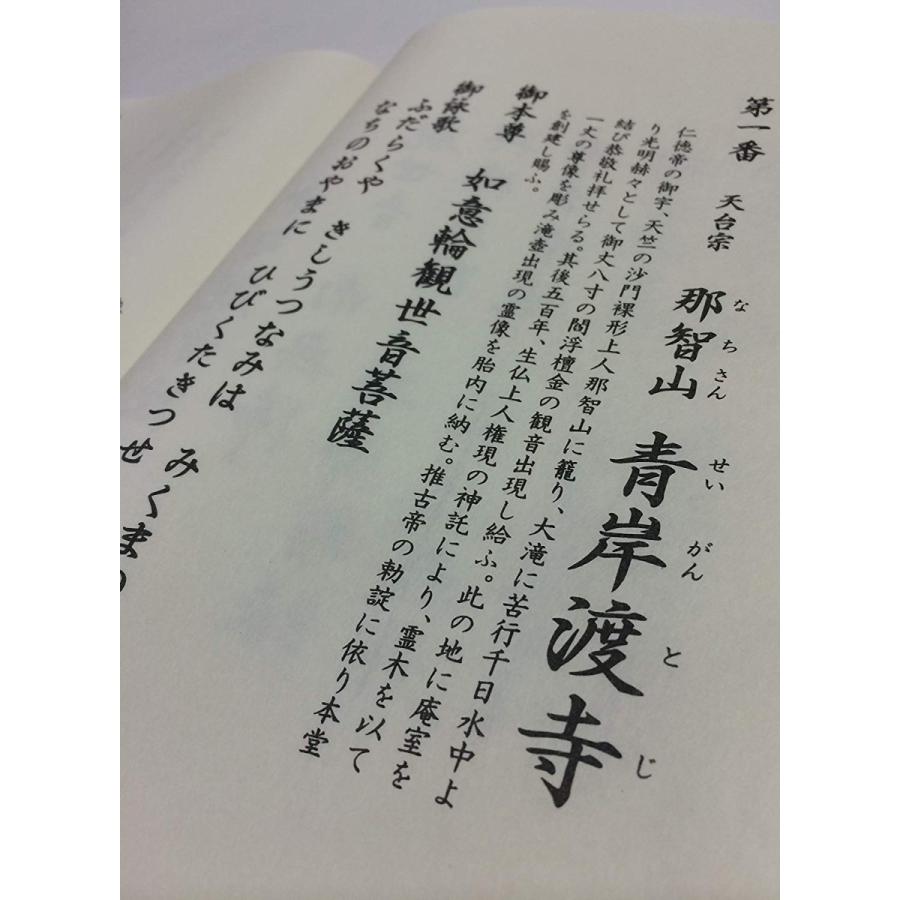 第一番 天台宗 那智山 青岸渡寺
なちさん せいがんとじ
仁徳帝の御宇、天竺の沙門裸形上人那智山に籠り、大滝に苦行千日水中よ
り光明赫々として御丈八寸の閻浮檀金の観音出現し給ふ。此の地に庵室を
結び恭敬礼拝せらる。其後五百年、生仏上人権現の神託により、霊木を以て
一丈の尊像を彫み滝壺出現の霊像を胎内に納む。推古帝の勅諚に依り本堂
を創建し賜ふ。
御本尊 如意輪観世音菩薩
御詠歌
ふだらくや きしうつなみは みくまの
なちのおやまに ひびくたきつせ